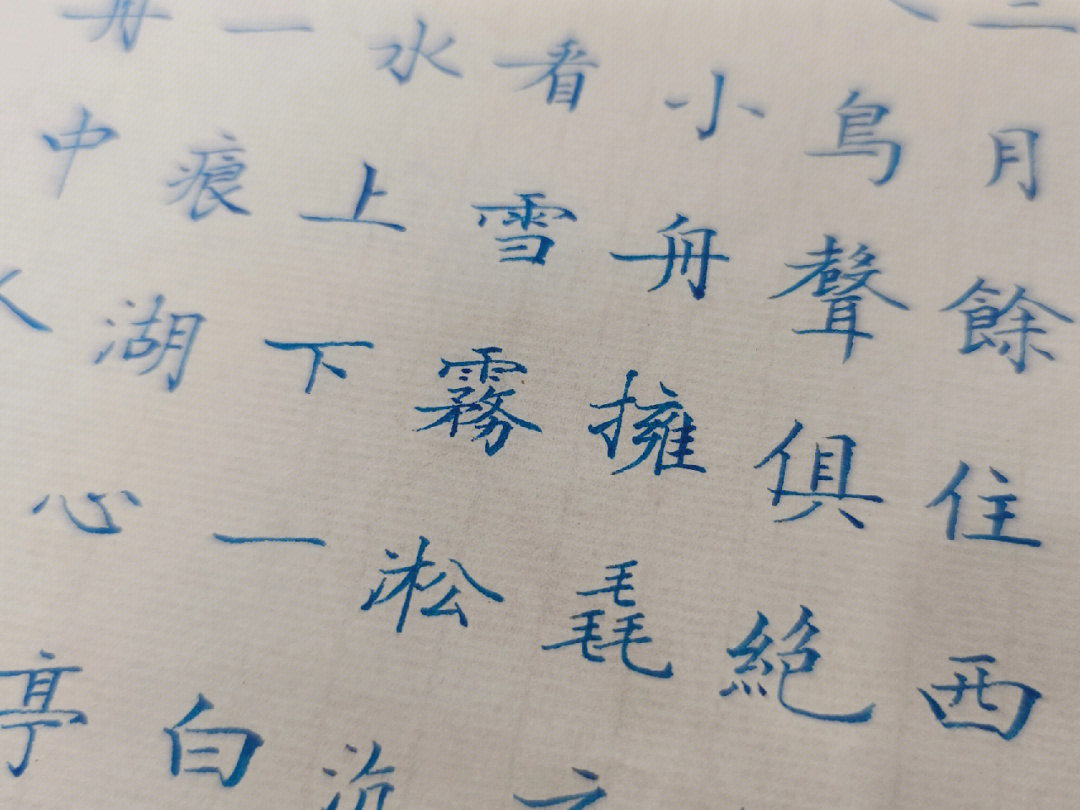 二月餘住西
鳥聲俱絕
小舟擁毳
看雪霧淞沆
水上下一白
一痕湖心亭
舟中人